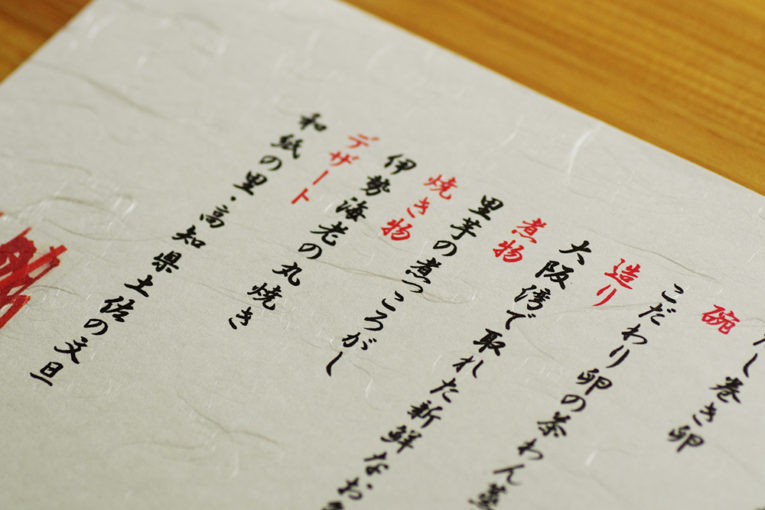 し巻き卵
碗
こだわり卵の茶わん蒸
造り
大阪湾で取れた新鮮なお
煮物
里芋の煮っころがし
焼き物
伊勢海老の丸焼き
デザート
和紙の里・高知県土佐の文旦